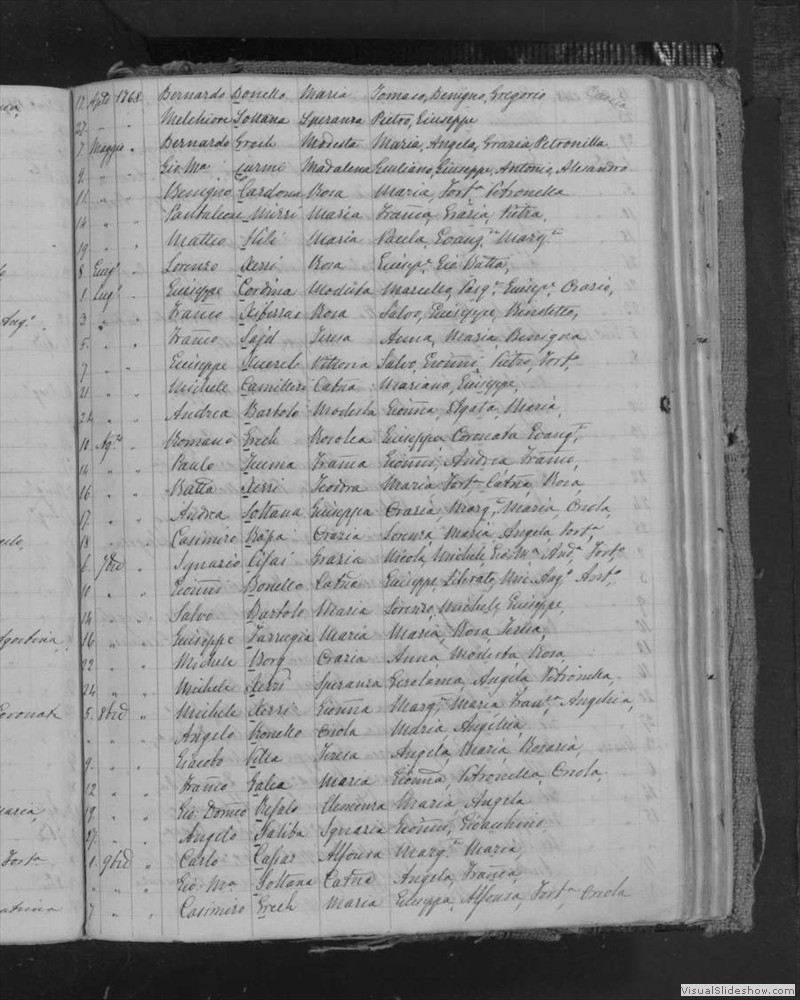 12 Aple 1768 Bernardo Bonello Maria Tomaso, Benigno, Gregorio
27 " " Melchiore Soltana Speranza Pietro, Giuseppe
7 Maggio " Bernardo Grech Modesta Maria, Angela, Grazia, Petronilla
9 " " Gio. Ma Curmi Madalena Giuliano, Giuseppe, Antonio, Alesandro
11 " " Benigno Cardona Rosa Maria, Forta Petronella
14 " " Pantaleone Mizzi Maria Franca, Grazia, Pietra,
19 " " Matteo Hili Maria Paula, Evanga Marga
8 Giugo " Lorenzo Xerri Rosa Giusepe Gio Batta,
1 Lugo " Giuseppe Cordina Modesta Marcello, Pasqe, Giusepe, Orazio,
3 " " Franco Xiberras Rosa Salvo, Giuseppe, Benedetto,
5 " " Franco Sajd Teresa Anna, Maria, Benigna
7 " " Giuseppe Vittoria Salvo, Gionni Pietro, Forto
21 " " Michele Camilleri Catna Mariano, Giuseppe,
24 " " Andrea Bartolo Modesta Gionna, Agata, Maria,
10 Ago " Romano Grech Rosolea Giuseppa Coronata Evanga,
14 " " Paulo Franca Gionni, Andrea Franco,
16 " " Batta Xerri Teodora Maria, Forta Catna, Rosa,
17 " " Andrea Soltana Giuseppa Grazia, Marga, Maria, Onola,
18 " " Casimiro Rapa Grazia Lorenza, Maria, Angela, Forta
6 7bre " Ignazio Cifai Grazia Nicola, Michele, Gio Ma, Anda, Forto
10 " " Gionni Bonello Catna Giuseppe, Liberato, Min: Ango Anto
14 " " Salvo Bartolo Maria Lorenzo, Michele, Giuseppe,
16 " " Giuseppe Farrugia Maria Maria, Rosa, Teresa,
22 " " Michele Borg Grazia Anna, Modesta, Rosa,
24 " " Michele Xerri Speranza Gerolama, Angela Petronella,
5 8bre " Michele Xerri Gionna Marga, Maria, Franca, Angelica,
" " " Angelo Bonello Onola Maria Angelica,
9 " " Giacobo Vella Teresa Angela, Maria, Rosaria,
12 " " Franco Galea Maria Gionna, Petronella, Onola,
19 " " Gio: Domco Refalo Clemenza Maria Angela
27 " " Angelo Saliba Ignazia Gionni, Gioacchino,
1 9bre " Carlo Caspar Alfonsa Marga Maria,
" " " Gio: Ma Soltana Catna Angela, Franca,
7 " " Casimiro Grech Maria Giuseppa, Alfonsa, Forta, Onola
VisualSlideshow.com